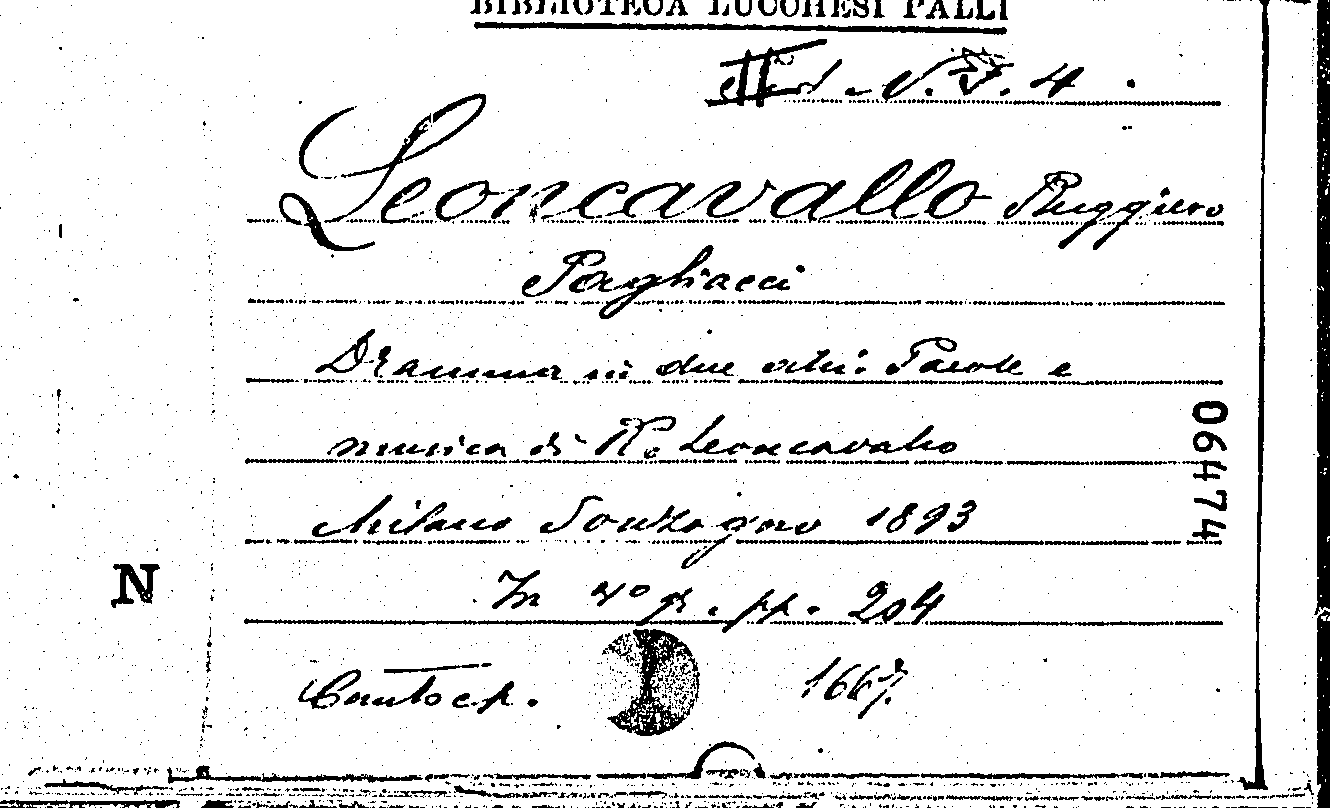 BIBLIOTECA LUCCHESI PALLI
N. F. 4
Leoncavallo Ruggiero
Pagliacci
Dramma in due atti: Parole e
musica di R. Leoncavallo
06474
Milano Sonzogno 1893
N
In 4º gr. pp. 204
1667